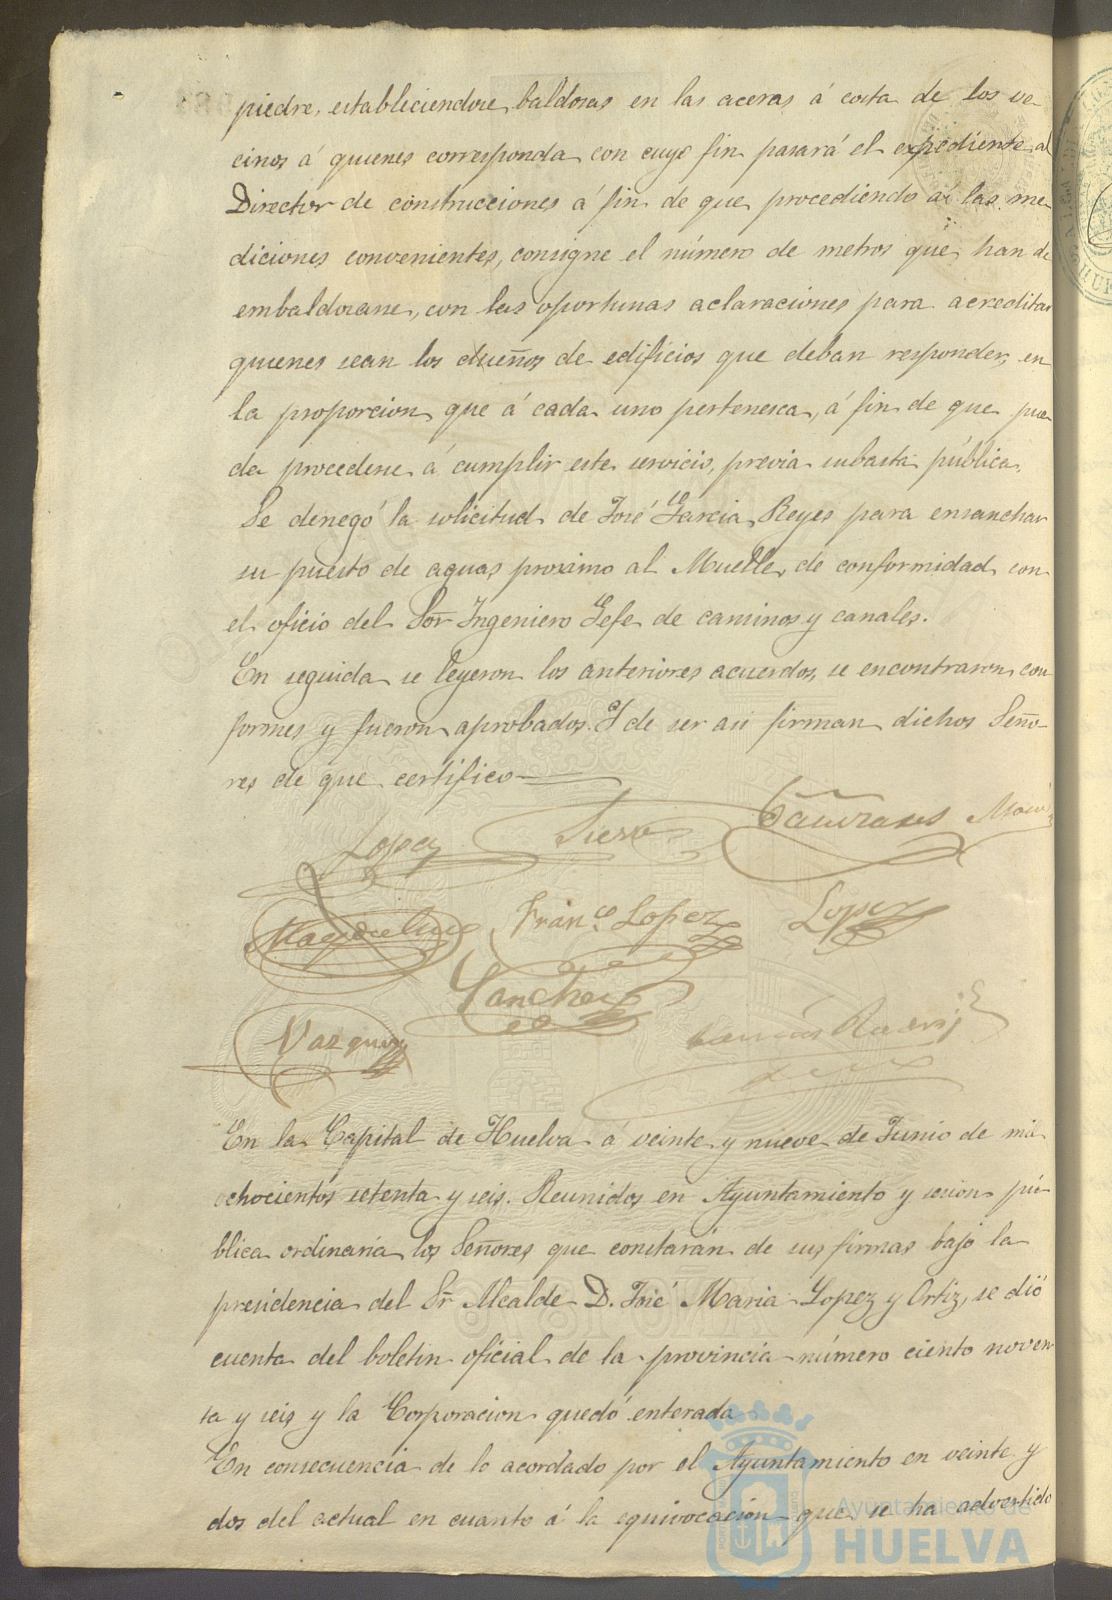 piedra, estableciendose baldosas en las aceras á costa de los ve-
cinos á quienes corresponda con cuyo fin pasará el expediente al
Director de construcciones á fin de que procediendo á las me-
diciones convenientes, consigne el número de metros que han de
embaldosarse, con las oportunas aclaraciones para acreditar
quienes sean los dueños de edificios que deban responder, en
la proporcion que á cada uno pertenesca, á fin de que pue-
da procederse á cumplir este servicio, previa subasta pública.
Se denegó la solicitud de José Garcia Reyes para ensanchar
su puesto de aguas proximo al Muelle, de conformidad con
el oficio del Sor Ingeniero Gefe de caminos y canales.
En seguida se leyeron los anteriores acuerdos, se encontraron con-
formes y fueron aprobados. Y de ser asi firman dichos Seño-
res de que certifico
Lopez
Franco Lopez Lopez
Sanchez
Vazquez
En la Capital de Huelva á veinte y nueve de Junio de mil
ochocientos setenta y seis. Reunidos en Ayuntamiento y sesion pú-
blica ordinaria los Señores que constarán de sus firmas bajo la
presidencia del Sr Alcalde D. José Maria Lopez y Ortiz, se dió
cuenta del boletin oficial de la provincia número ciento noven-
ta y seis y la Corporacion quedó enterada
En consecuencia de lo acordado por el Ayuntamiento en veinte y
dos del actual en cuanto á la equivocacion que se ha advertido
Ayuntamiento de
HUELVA